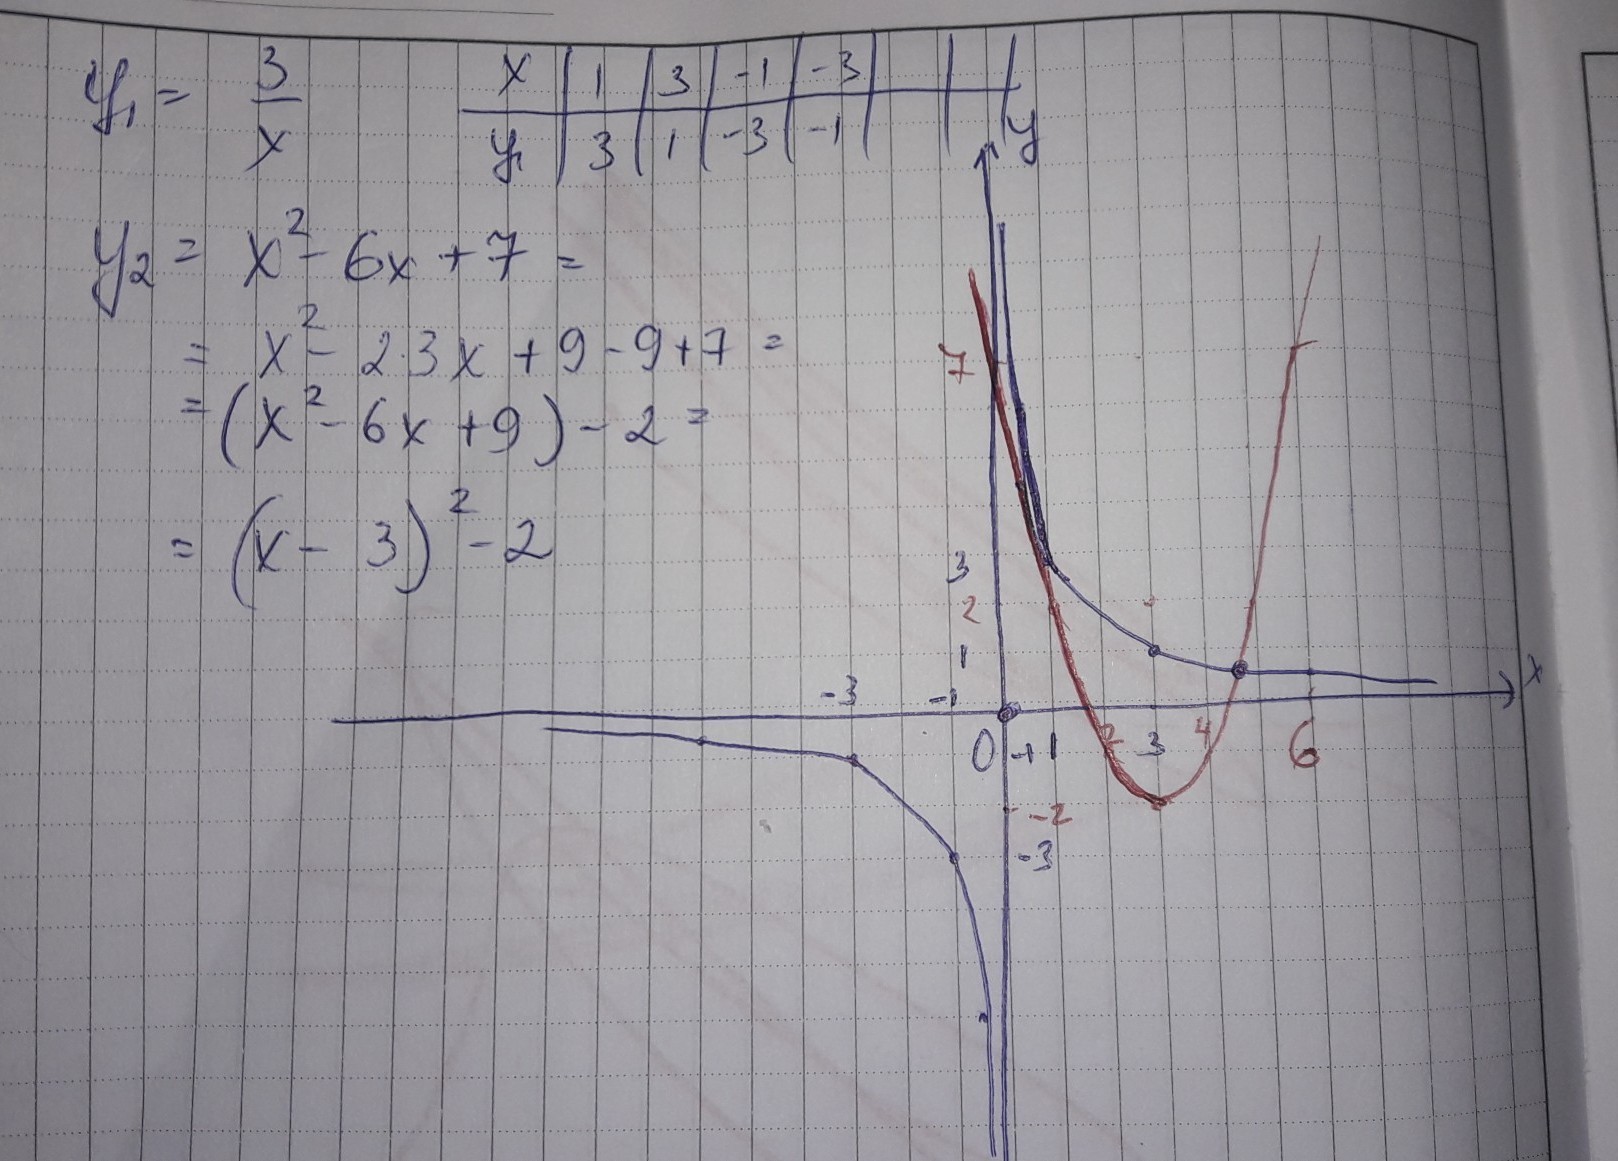 y₁ = 3/x
x | 1 | 3 | -1 | -3
y₁ | 3 | 1 | -3 | -1
y₂ = x² - 6x + 7 =
= x² - 2·3x + 9 - 9 + 7 =
= (x² - 6x + 9) - 2 =
= (x - 3)² - 2
y
7
3
2
1
x
-3 -1
0 +1 2 3 4 6
-2
-3